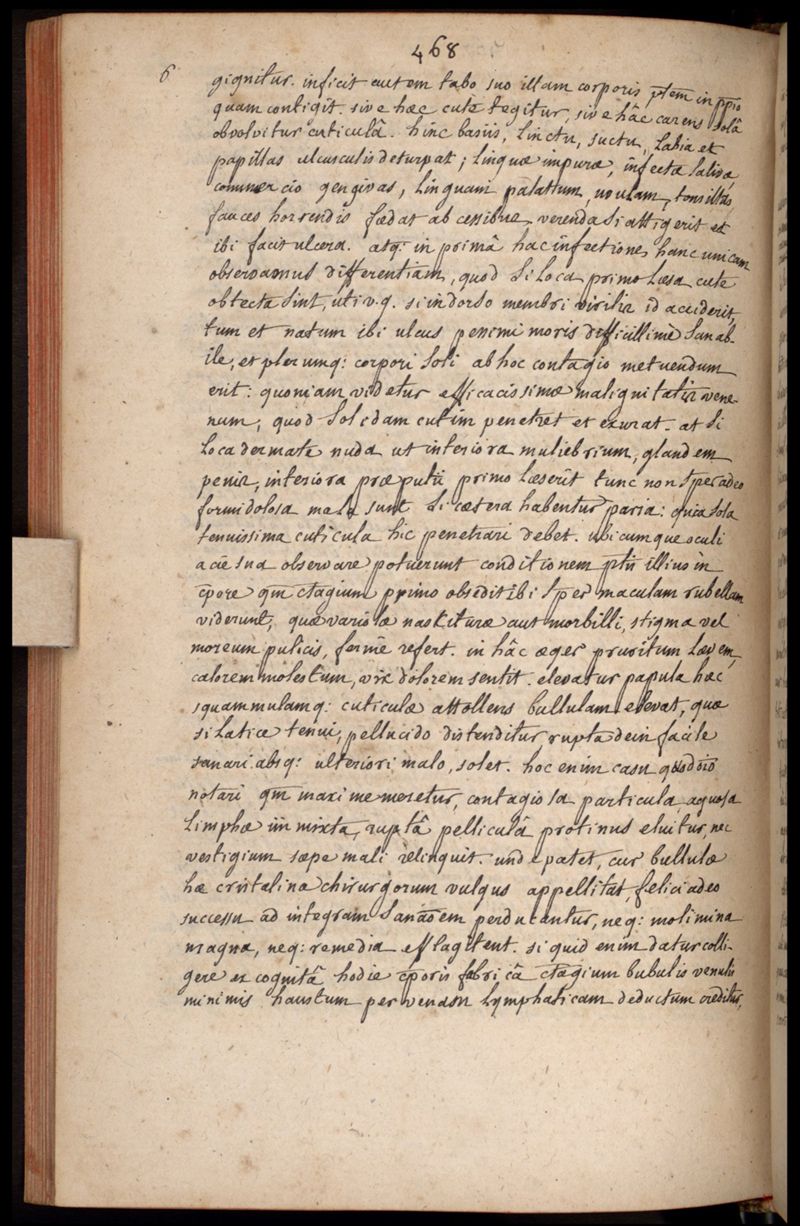 468
6
gignitur. inficit cutem tabo suo illam corporis ptem in ppio
quam contigit. sive hæc cute tegitur, sive hâc carens solâ
obvolvitur cuticulâ. hinc basiis, linctu, suctu, labia et
papillas ulcusculis deturpat; linguæ impuræ, infectæ salivæ
commercio gengivas, linguam palatum, uvulam, tonsillas
fauces horrendis fœdat abcessibus verenda si attigerit et
ibi facit ulcera. atq: in primâ hac infectione, hanc unicam
observamus differentiam, quod si loca primo læsa cute
obtecta sint, uti v.g. si in dorso membri virilis id acciderit,
tum et natum ibi ulcus pessimi moris difficillimè sanab-
ile, et plerumq: corpori soli ab hoc contagio metuendum
erit: quoniam videtur efficacissimæ malignitatis vene-
num, quod solidam cutim penetret et exurat. at si
loca dermate nuda ut interiora muliebrium, glandem
penis, interiora præputii primo læserit tunc non sper adeo
formidolosa mala sunt si cætera habentur paria: quia sola
tenuissima cuticula hic penetrari debet. ubicumque oculi
acie sua observare potuerunt conditionem ptis illius in
cpore qm ctagium primo obsedit ibi sper maculam rubellam
viderunt, quæ variolæ nascituræ aut morbilli, stigma vel
morsum pulicis, ferme refert. in hâc æger pruritum lævem,
calorem molestum, vix dolorem sentit. elevatur papula hæc
squammulamq: cuticulæ attollens bullulam elevat, quæ
si latice tenui, pellucido distenditur rupta dein facile
sanari absq: ulteriori malo, solet. hoc enim casu quod
notari qm maxime meretur, contagiosa particula aquosa
limphæ immixta, ruptâ pelliculâ protinus eluitur, nec
vestigium sæpe mali relinquit. unde patet, cur bullulæ
hæ cristalinæ chirurgorum vulgus appellitat, felici adeo
successu ad integram sanaoem perducantur, neq: molimina
magna, neq: remedia efflagitent. si quid enim datur colli-
gere ex cognitâ hodie cporis fabricâ ctagium bubulis venulis
minimis haustum per venam lymphaticam deductum creditur,